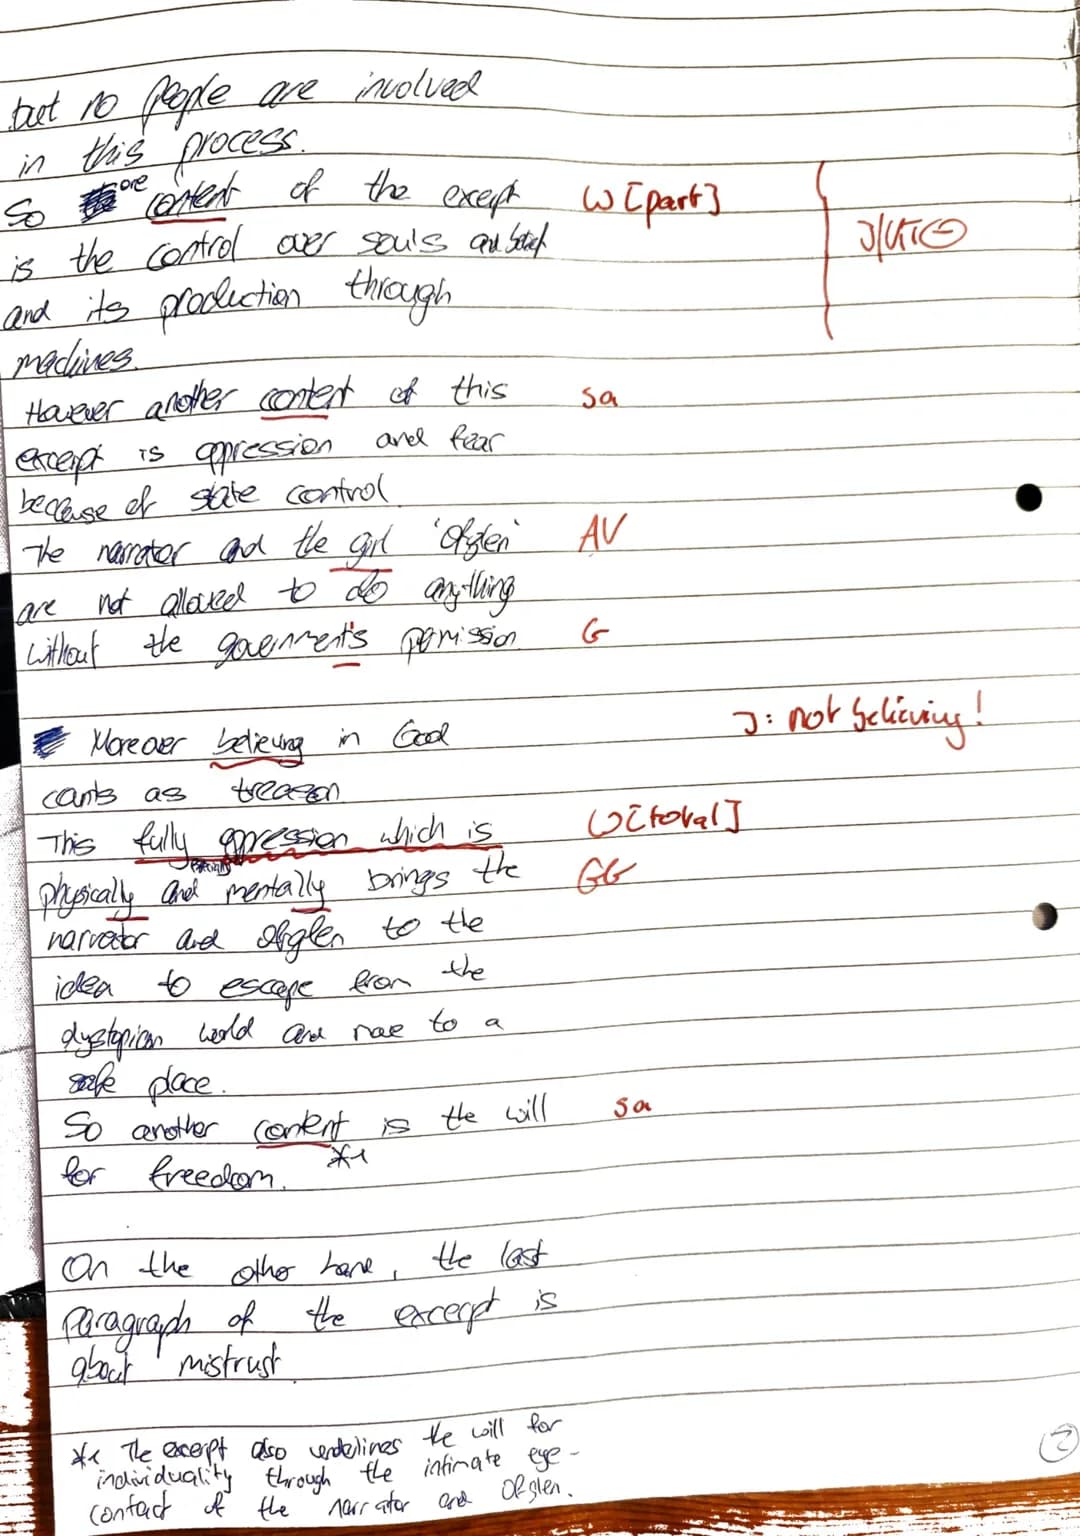 but no people are involved
in this process.
So one content of the exept W [part]
is the control over souls and belief J/
and its production through
machines.
However another content of this sa
excerpt is oppression and fear
because of state control
The narrator and the girl 'Ofglen' AV
are not allowed to do anything
without the government's permission G
Moreover believing in God J: not believing!
counts as treason
This fully oppression which is W [total]
especially
physically and mentally brings the GG
narrator and Ofglen to the
idea to escape from the
dystopian world and move to a
safe place.
So another content is the will sa
for freedom. *1
On the other hand, the last
paragraph of the excerpt is
about mistrust.
*1 The excerpt also underlines the will for
individuality through the intimate eye-
contact of the narrator and Ofglen.
2